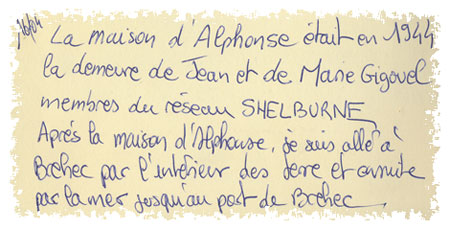 16/04
La maison d'Alphonse était en 1944
la demeure de Jean et de Marie Gicquel
membres du réseau SHELBURNE
Après la maison d'Alphonse, je suis allé à
Bréhec par l'intérieur des terre et ensuite
par la mer jusqu'au port de Bréhec